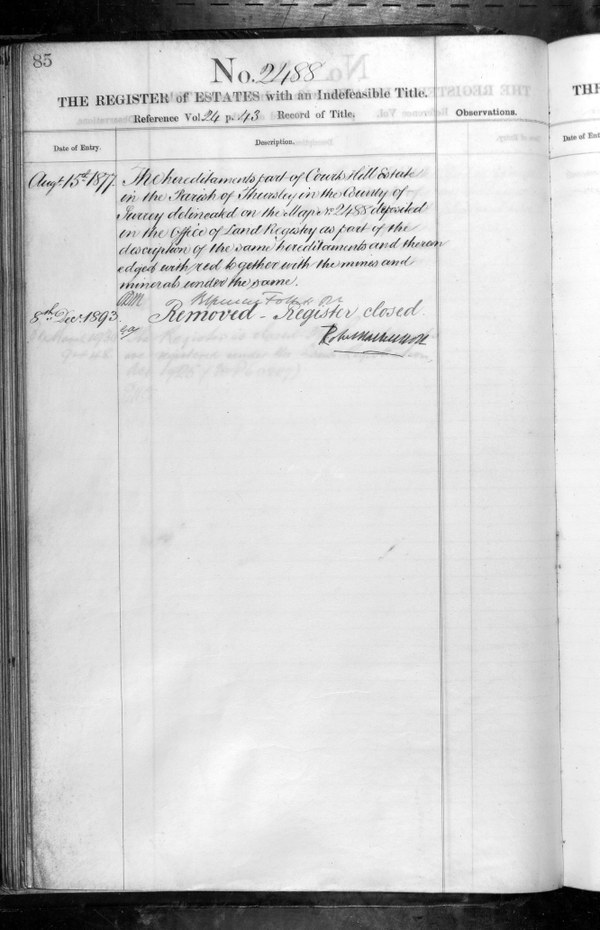 85
No. 2488
THE REGISTER of ESTATES with an Indefeasible Title.
Reference Vol. 24 p. 43 Record of Title.
Observations.
Date of Entry.
Description.
Augt. 15th 1877.
The hereditaments part of Courts Hill Estate
in the Parish of Thursley in the County of
Surrey delineated on the Map No 2488 deposited
in the Office of Land Registry as part of the
description of the same hereditaments and thereon
edged with red together with the mines and
minerals under the same.
8th Decr. 1893.
Removed - Register closed.
THE
Date of Ent